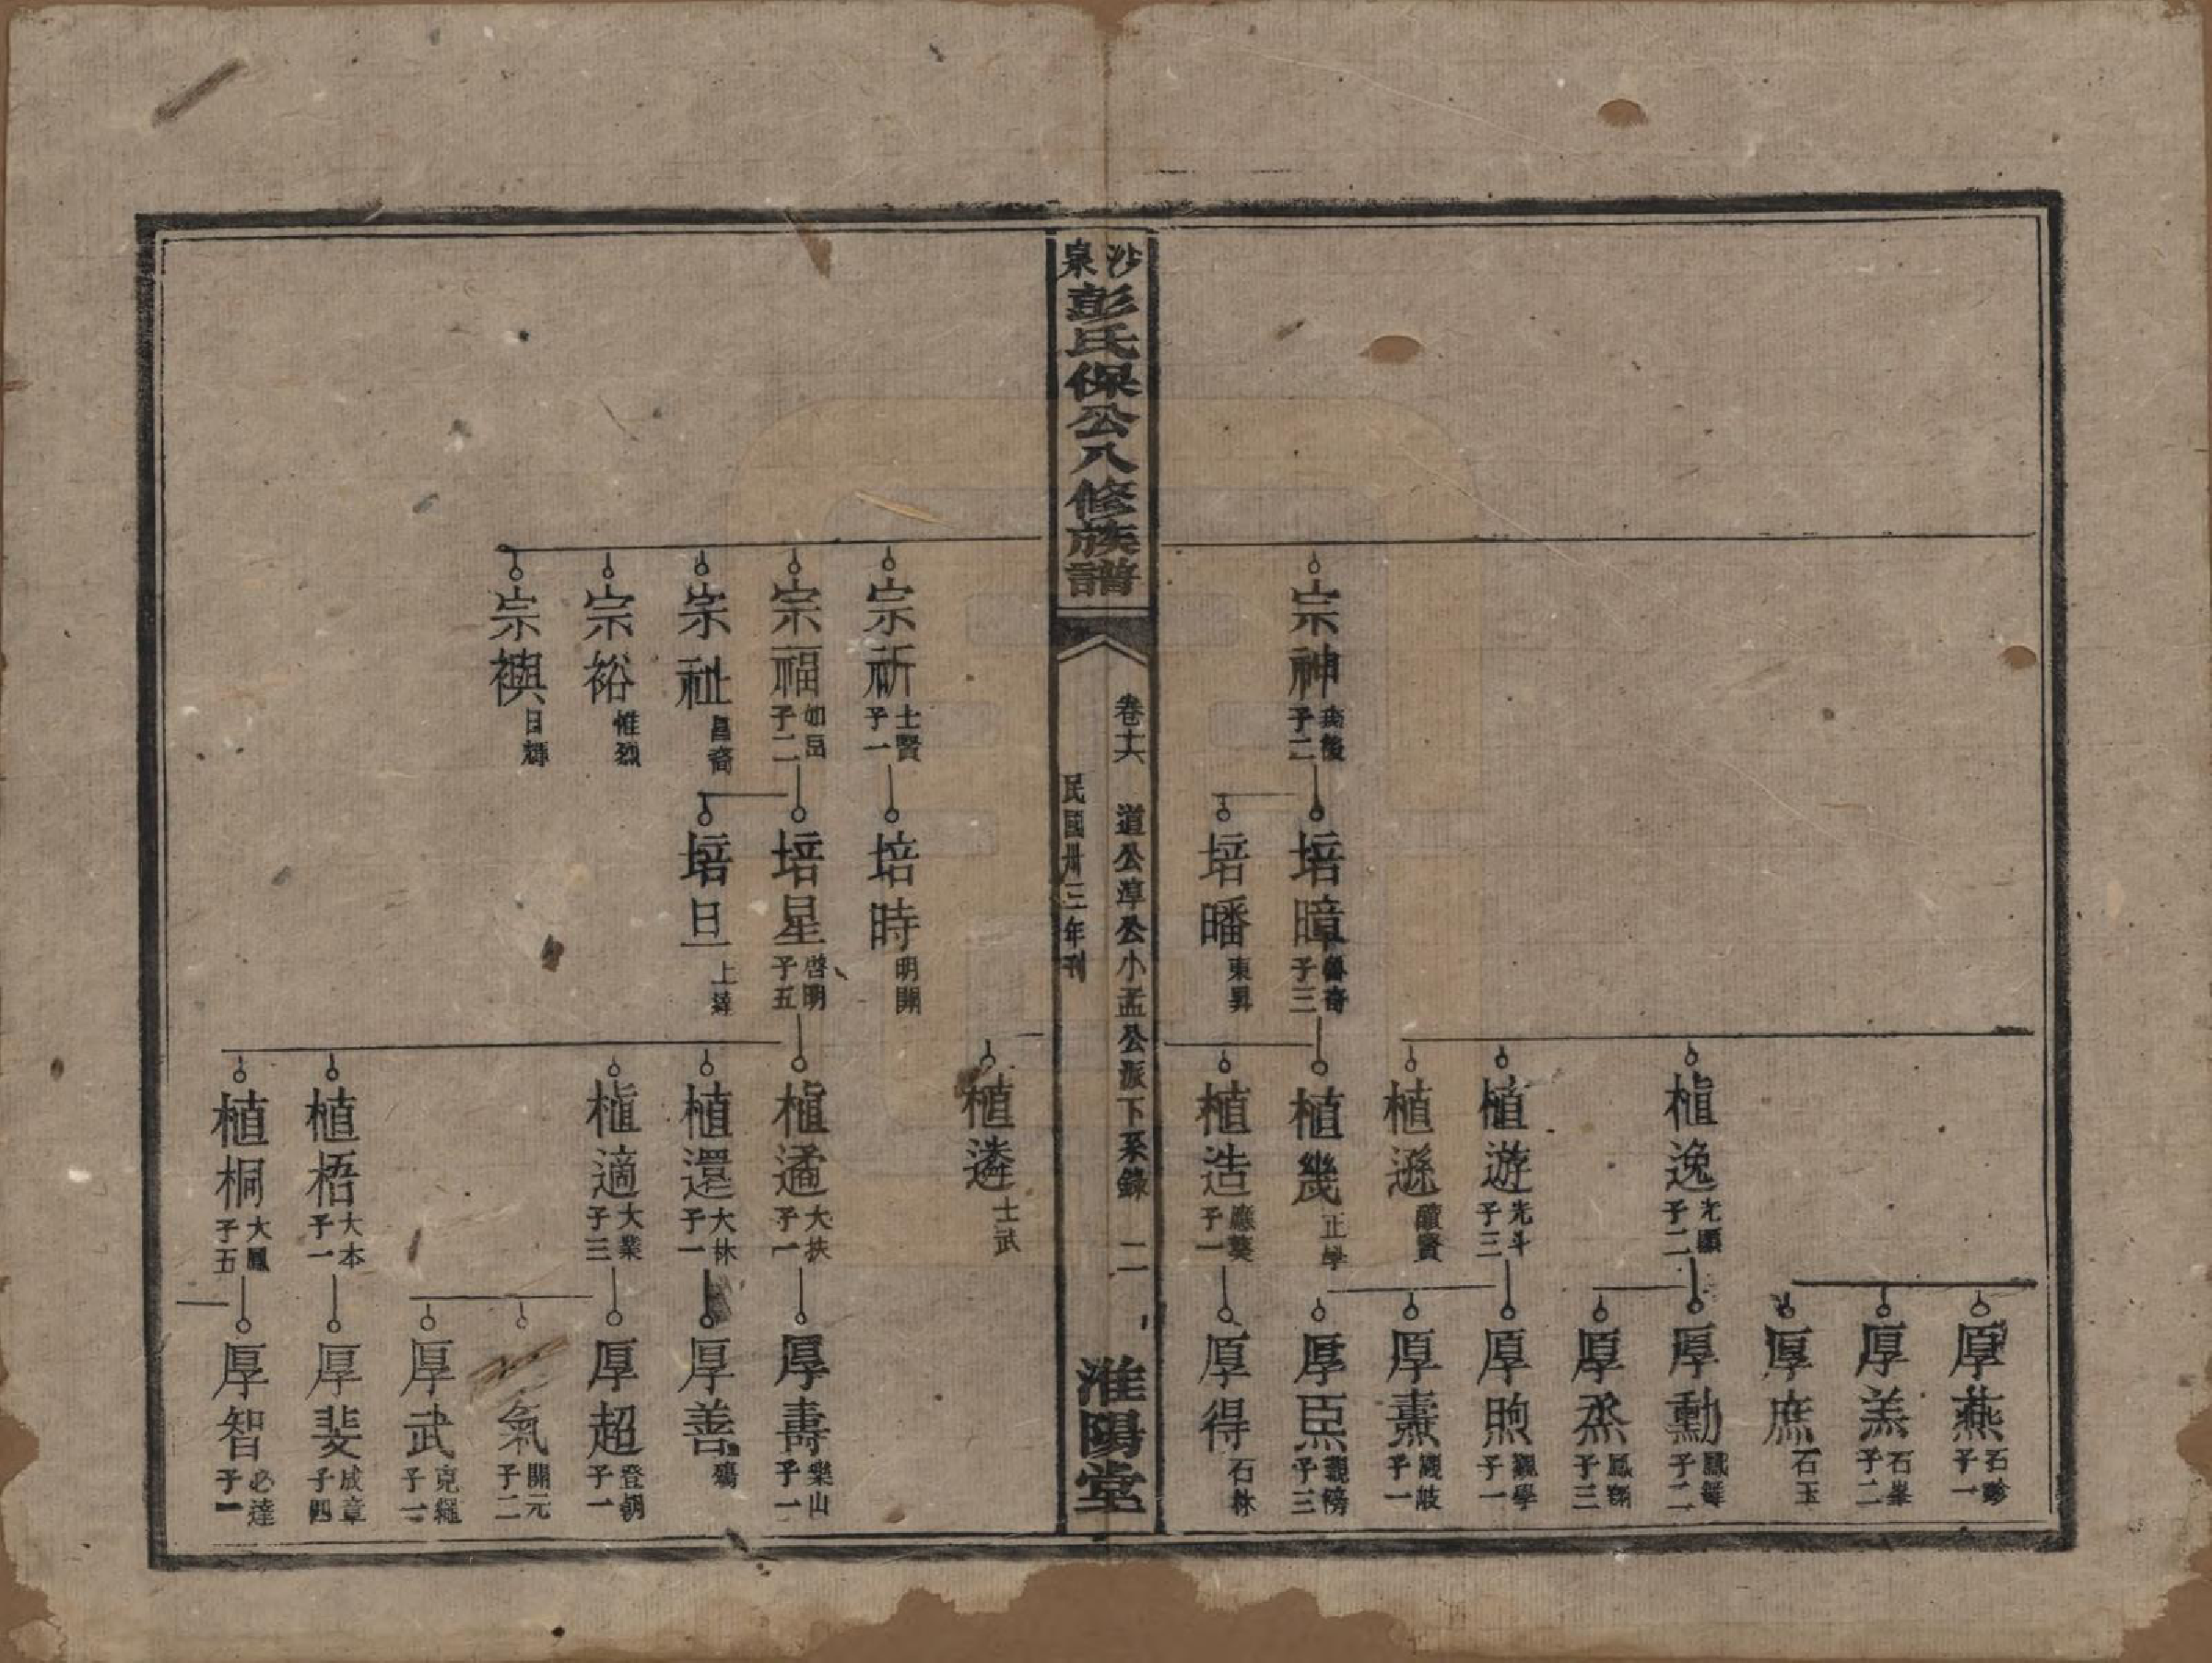 宗神 子二
培暲 子三
培皤 東昇
植逸 光顯 子二
植遊 光斗 子三
植遜 賢
植幾 正學
植造 應葵 子一
厚燕 石珍 子一
厚羔 石峯 子二
厚庶 石玉
厚勳 子二
厚烝 鳳翔 子三
厚煦 觀學 子一
厚燾 子一
厚 子三
厚得 石林
沙泉彭氏保公八修族譜
卷十六 道公淳公小孟公派下系錄 二
民國卅三年刊
淮陽堂
宗祈 士賢 子一
宗福 如岳 子二
宗祉 昌裔
宗裕 惟烈
宗襖 日輝
培時 明開
培星 啓明 子五
培旦 上達
植遴 士武
植遹 大扶 子一
植還 大林 子一
植適 大業 子三
植梧 大本 子一
植桐 大鳳 子五
厚壽 樂山 子一
厚善 殤
厚超 登朝 子一
氣 開元 子二
厚武 克繩 子二
厚斐 成章 子四
厚智 必達 子一